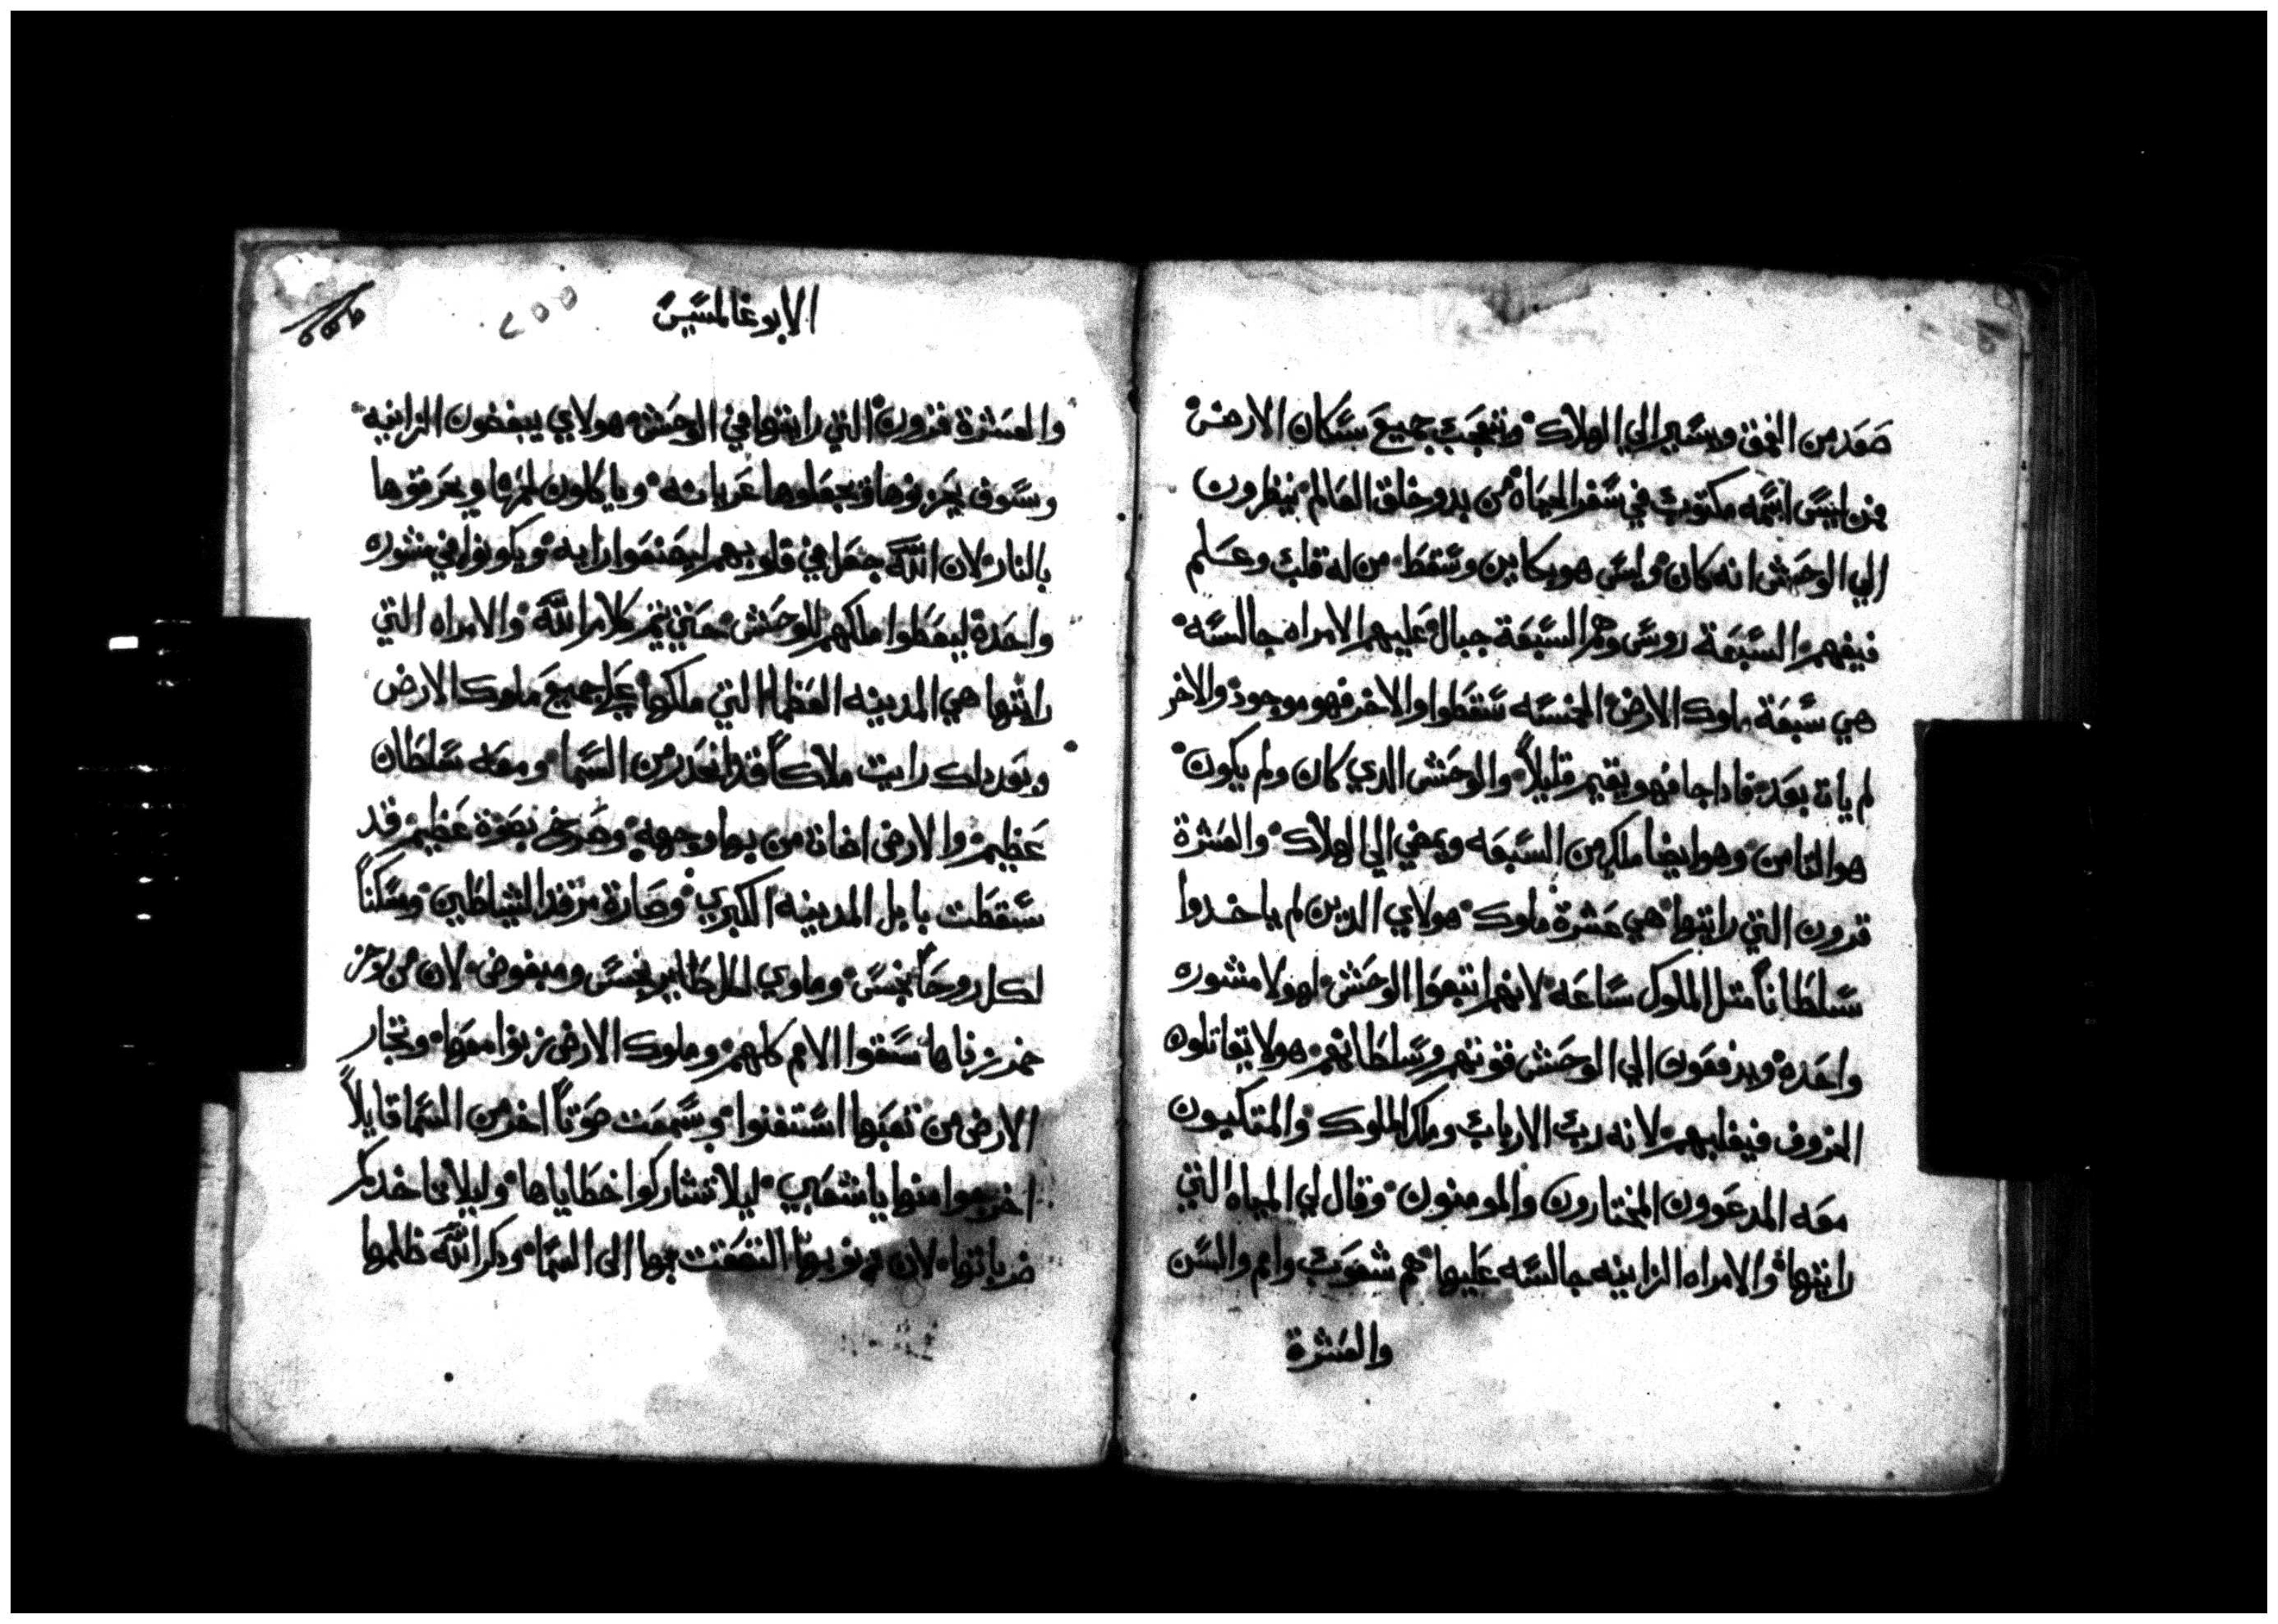 صعد من العمق ويسير الي الهلاك وتتعجب جميع سكان الارض
من ليس اسمه مكتوب في سفر الحياة من بدو خلق العالم ينظرون
الي الوحش انه كان وليس هو بكاين وسقط من له قلب وعلم
فيفهم السبعة روس وهم السبعة جبال عليهم الامراه جالسه
هي سبعة ملوك الارض الخمسه سقطوا والاخر فهو موجود والاخر
لم يات بعد فادا جا فهو يقيم قليلاً والوحش الدي كان ولم يكون
هو الثامن وهو ايضا ملك من السبعه ويمضي الي الهلاك والعشرة
قرون التي رايتها هي عشرة ملوك هولاي الدين لم ياخدوا
سلطاناً متل الملوك ساعه لانهم اتبعوا الوحش لهولا مشوره
واحده ويدفعون الي الوحش قوتهم وسلطانهم هولا يقاتلوه
الخروف فيغلبهم لانه رب الارباب وملك الملوك والمتكيون
معه المدعوون المختارون والمومنون وقال لي المياه التي
رايتها والامراه الزانيه جالسه عليها هم شعوب وامم والسن
والعشرة
الابوغالمسيس
٢٥٥
والعشرة قرون التي رايتها في الوحش هولاي يبغضون الزانيه
وسوف يخربوها ويجعلوها عريانه وياكلون لحمها ويحرقوها
بالنار لان الله جعل في قلوبهم ليصنعوا رايه ويكونوا في مشوره
واحدة ليعطوا ملكهم للوحش حتي يتم كلام الله والامراه التي
رايتها هي المدينه العظما التي ملكها علي جميع ملوك الارض
وبعد دلك رايت ملاكاً قد انحدر من السما ومعه سلطان
عظيم والارض اضات من بها وجهه وصرخ بصوة عظيم قد
سقطت بابل المدينه الكبري وصارة مرقد الشياطين ومسكناً
لكل روحاً نجس وماوي لكل طاير نجس ومبغوض لان من
خمر زناها سقوا الامم كلهم وملوك الارض زنوا معها وتجار
الارض من تعبها استغنوا وسمعت صوتاً اخر من السما قايلاً
اخرجوا منها ياشعبي ليلا تشاركوا خطاياها وليلا تاخدكم
ضرباتها لان دنوبها التصقت بها الى السما ودكر الله ظلمها